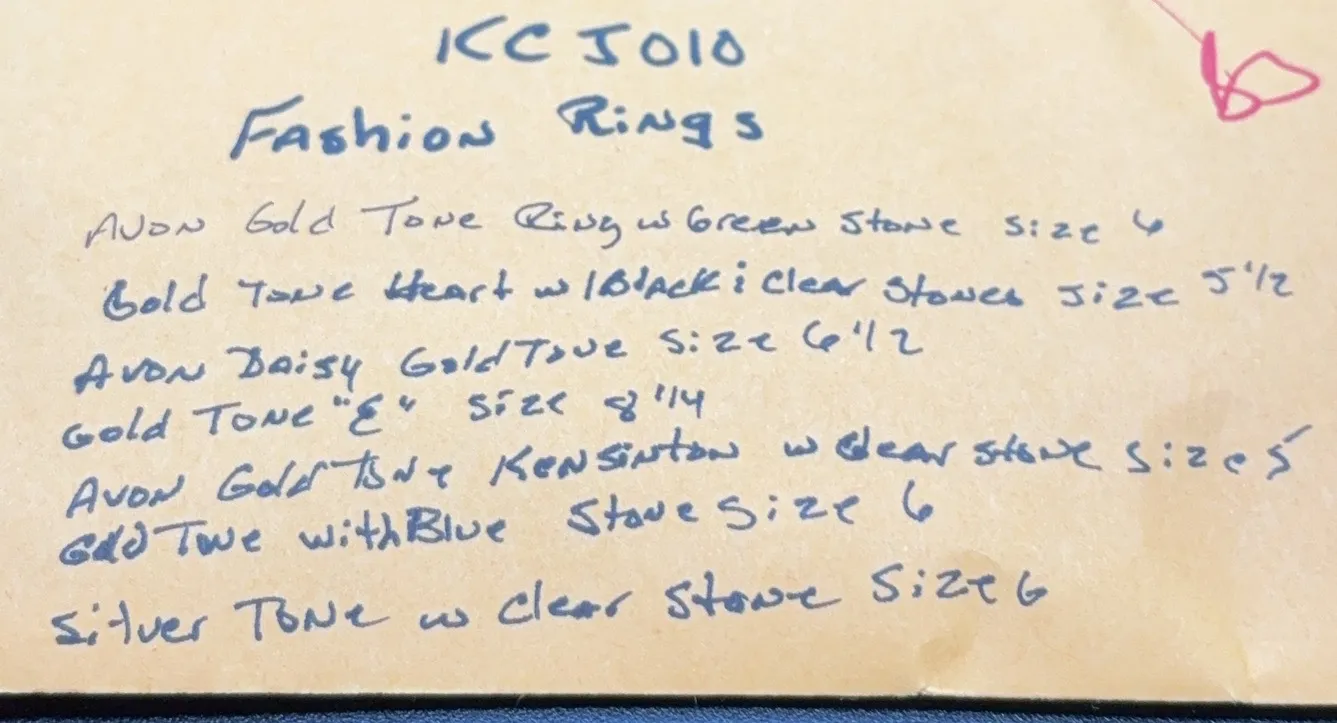 KCJ010
Fashion Rings
Avon Gold Tone Ring w Green Stone Size 6
Gold Tone Heart w/Black & Clear Stones Size 5 1/2
Avon Daisy Gold Tone Size 6 1/2
Gold Tone "E" Size 8 1/4
Avon Gold Tone Kensinton w Clear Stone Size 5
Gold Tone with Blue Stone Size 6
Silver Tone w Clear Stone Size 6